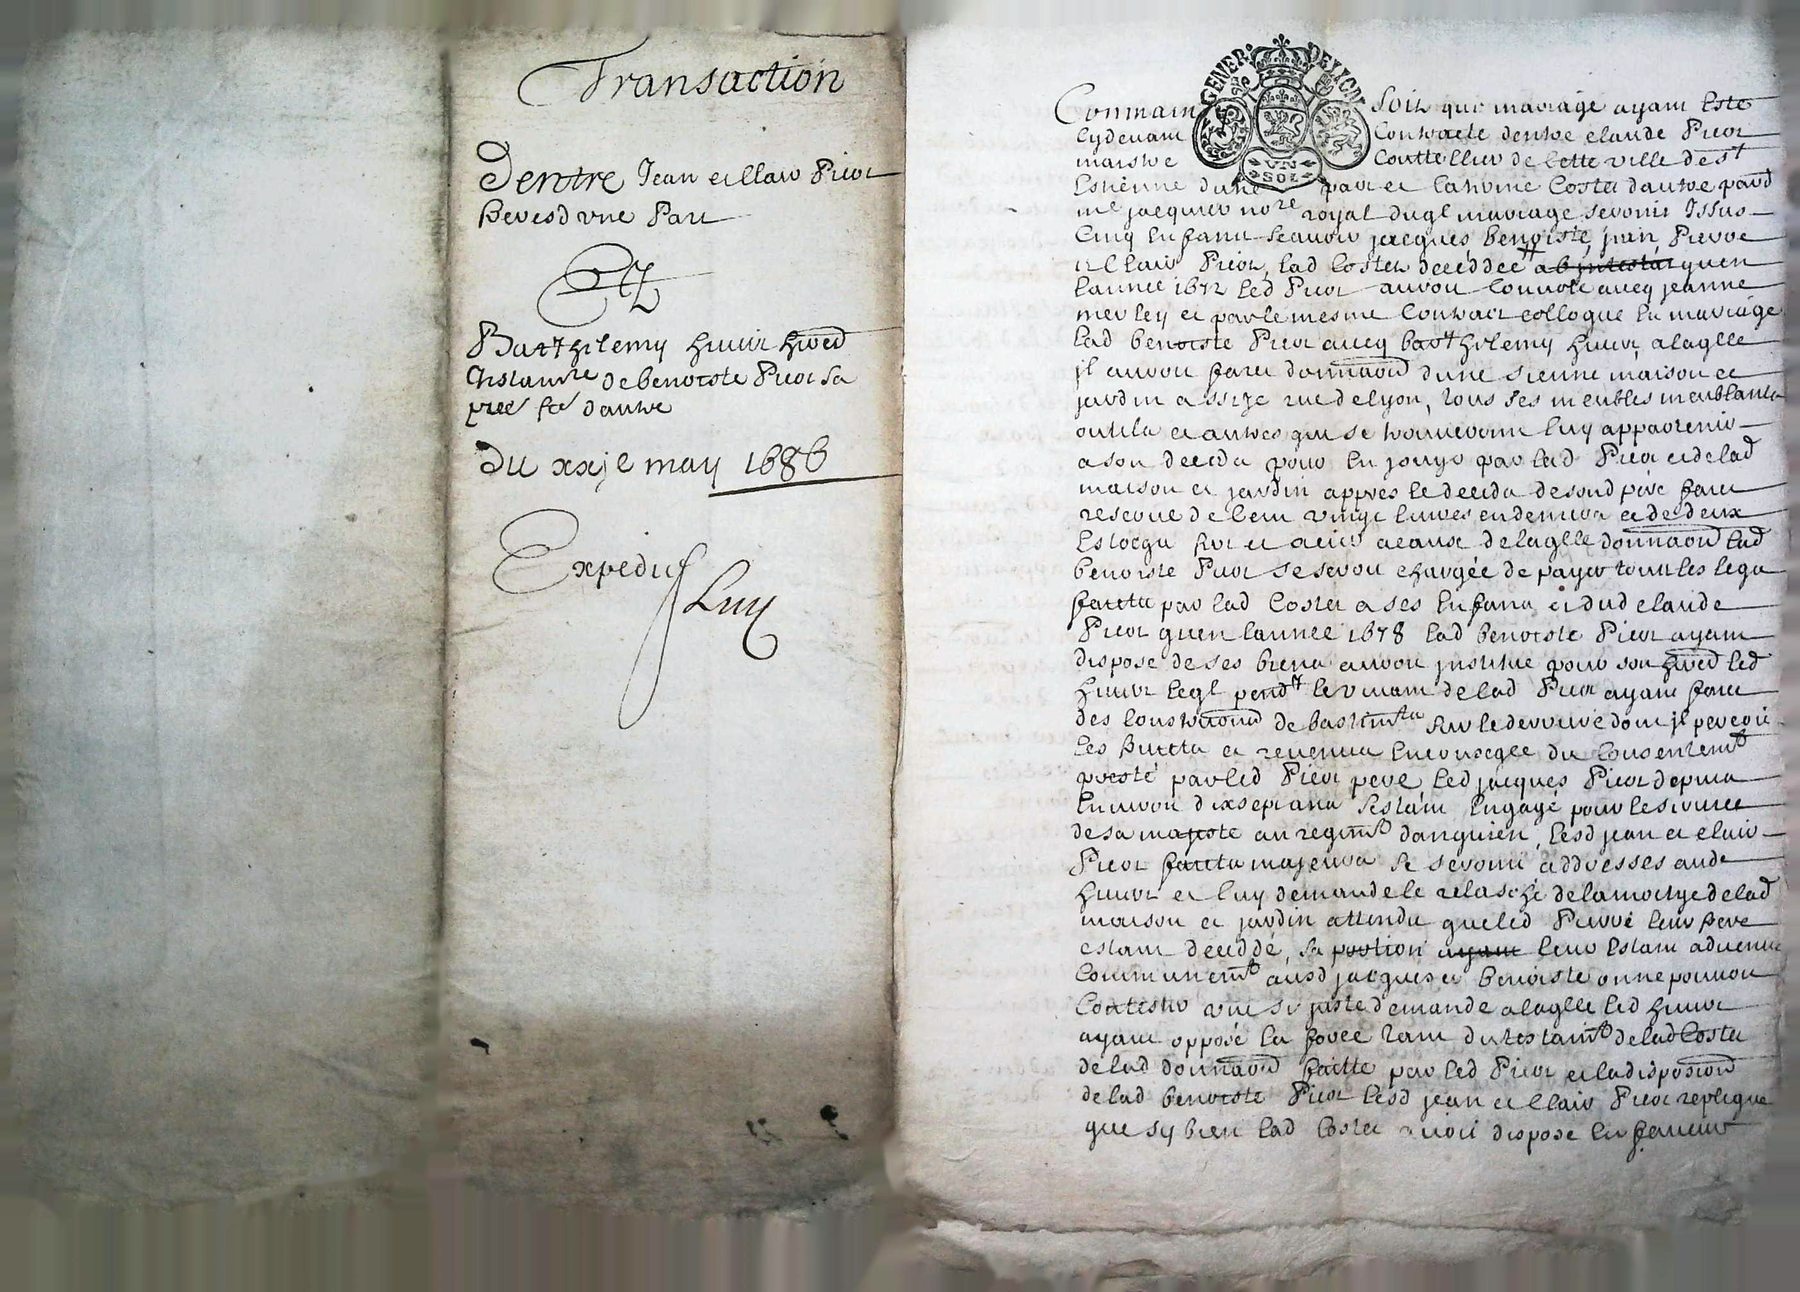 Transaction
Dentre Jean et Clair Picot
freres d'une Part
Et
Barthelemy hivict herd
Instantre de benoiste Picot sa
fee d'autre
du xxje may 1686
Expedié
Luy
GENER. DE LION
UN
SOL
Comme ainsi Soit que mariage ayant Esté
Cydevant Contracté dentre Claude Picot
maistre Couttellier de Cette ville de st
Estienne d'une part et Cathorine Coster d'autre pard
me jacquier nore royal duql mariage seroint Issus
Cinq Enfans scavoir jacques benoiste, jean, Pierre
et Clair Picot, lad Coster deceddée ab intestat quen
Lannée 1672 led Picot auroit Convolé avecq jeanne
merley et par le mesme Contract colloque En mariage
lad benoiste Picot avecq barthelemy hivict, a laqlle
jl auroit faict donnaond d'une sienne maison et
jardin assize rue de lyon, tous ses meubles meublants
outils et autres qui se trouveront luy appartenir
a son deceds pour En jouyr par lad Picot et de lad
maison et jardin appres le deceds de sond pere faict
reserve de Cent vingt livres en deniers et de deux
de laqlle donnaond lad
benoiste Picot se seroit chargée de payer tous les legs
faicts par lad Coster a ses Enfans et dud Claude
Picot quen lannée 1678 lad benoiste Picot ayant
disposé de ses biens auroit jnstitué pour son herd led
hivict leql pendt le vivant de lad Picot ayant faict
des Construond de bastimts sur le derriere dont jl perçoit
les fruicts et revenus Encore que du Consentemt
presté par led Picot pere led jacques Picot depuis
Environ dix sept ans s'estant Engagé pour le service
de sa majesté au regimt d'anguien, lesd jean et Clair
Picot faicts majeurs se seroint addressés aud
hivict et luy demandé le relasche de la moitye de lad
maison et jardin attendu que led Pierre leur frere
estant deceddé, sa portion ayant leur Estant advenue
Communemt ausd jacques et benoiste on ne pouvoit
Contester une si juste demande a laqlle led hivict
ayant opposé la force tant du testamt de lad Coster
de lad donnaond faitte par led Picot et la disposiond
de lad benoiste Picot lesd jean et Clair Picot replique
que sy bien lad Coster avoit disposé En faveur